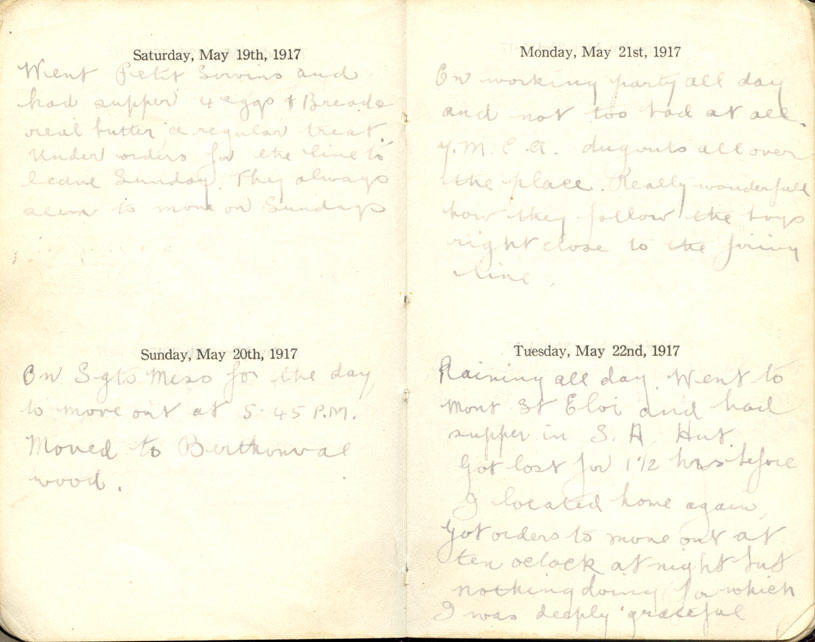 Saturday, May 19th, 1917
Went Petit Servins and
had supper 4 eggs & Bread &
real butter a regular treat.
Under orders for the line to
leave Sunday. They always
seem to move on Sundays
Sunday, May 20th, 1917
On Sgts Mess for the day
to move out at 5.45 P.M.
Moved to Berthonval
wood.
Monday, May 21st, 1917
On working party all day
and not too bad at all.
Y.M.C.A. dugouts all over
the place. Really wonderfull
how they follow the boys
right close to the firing
line.
Tuesday, May 22nd, 1917
Raining all day. Went to
Mont St Eloi and had
supper in S.A. Hut.
Got lost for 1 1/2 hrs before
I located home again.
Got orders to move out at
ten oclock at night but
nothing doing for which
I was deeply grateful